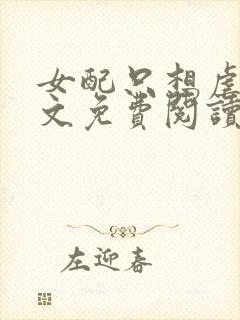 女配只想虐
文免費閱讀
左迎春